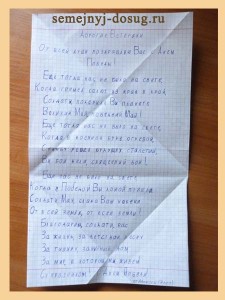 semejnyj-dosug.ru
Дорогие Ветераны
От всей души поздравляю Вас с Днем
Победы!
Ещё тогда нас не было на свете,
Когда гремел салют из края в край.
Солдаты, подарили Вы планете
Великий Май, победный Май!
Ещё тогда нас не было на свете,
Когда в военной буре огневой,
Судьбу решая будущих столетий,
Вы бой вели, священный бой!
Ещё нас не было на свете,
Когда с Победой Вы домой пришли.
Солдаты Мая, слава Вам навеки
От всей земли, от всей земли!
Благодарим, солдаты, вас
За жизнь, за детство и
За тишину, за мирный
За мир, в котором мы живём
С праздником! Днём Победы!